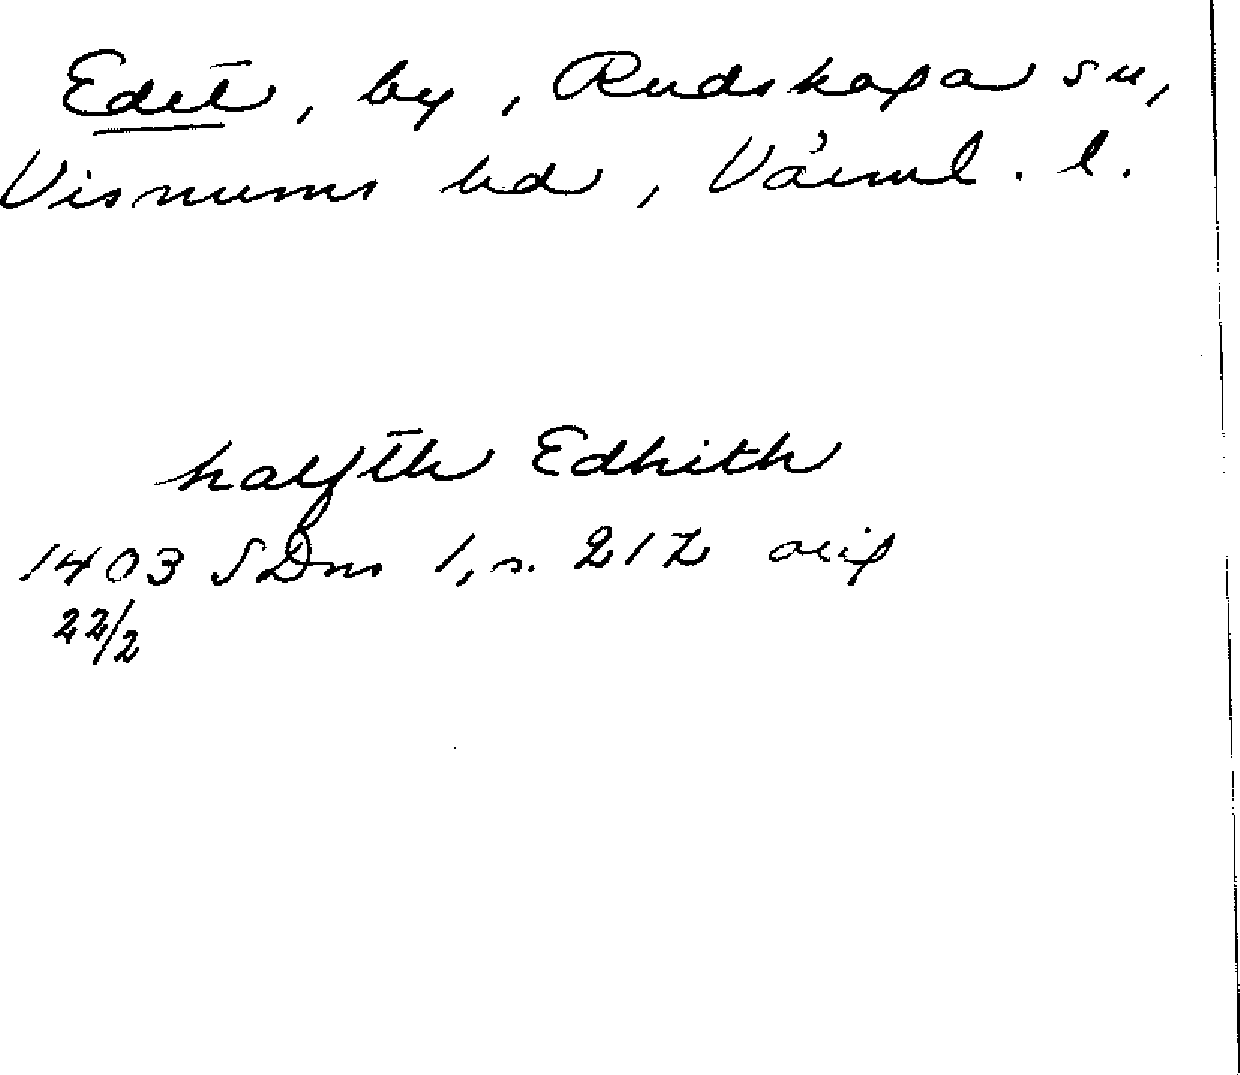 Edet, by, Rudskoga sn,
Visnums hd, Värml. l.
halfth Edhith
1403 SDns 1, s. 212 orig
22/2